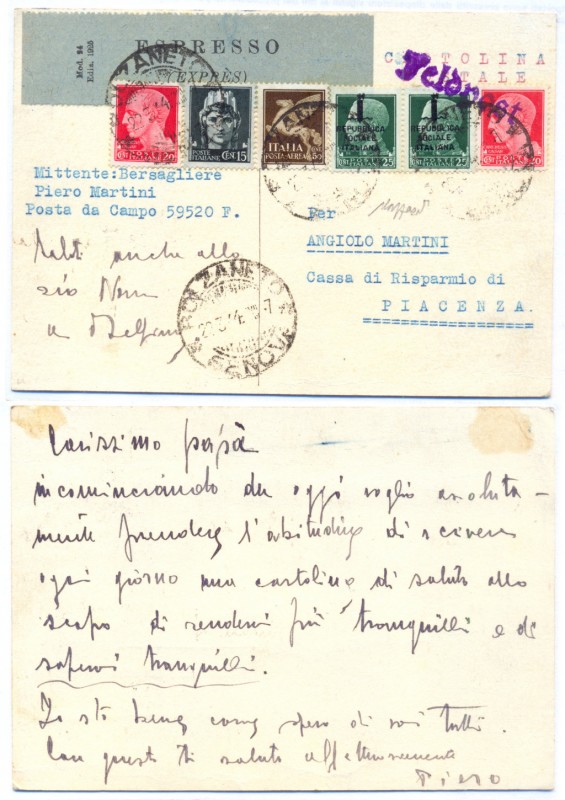 Mod. 24
Ediz. 1925
ESPRESSO
(EXPRÈS)
CARTOLINA
POSTALE
Feldpost
CENT 20
POSTE ITALIANE CENT 15
ITALIA
POSTA AEREA 50
REPUBBLICA
SOCIALE
ITALIANA
CENT 25
REPUBBLICA
SOCIALE
ITALIANA
CENT 25
CENT 20
Mittente:Bersagliere
Piero Martini
Posta da Campo 59520 F.
Saluti anche allo
zio
Per
ANGIOLO MARTINI
Cassa di Risparmio di
PIACENZA.
BOLZANETO
GENOVA
Carissimo papà
incominciando da oggi voglio assoluta-
mente prendere l'abitudine di scivere
ogni giorno una cartolina di saluto allo
scopo di rendervi più tranquilli e di
sapervi tranquilli.
Io sto bene come spero di voi tutti.
Con questo ti saluto affettuosamente
Piero